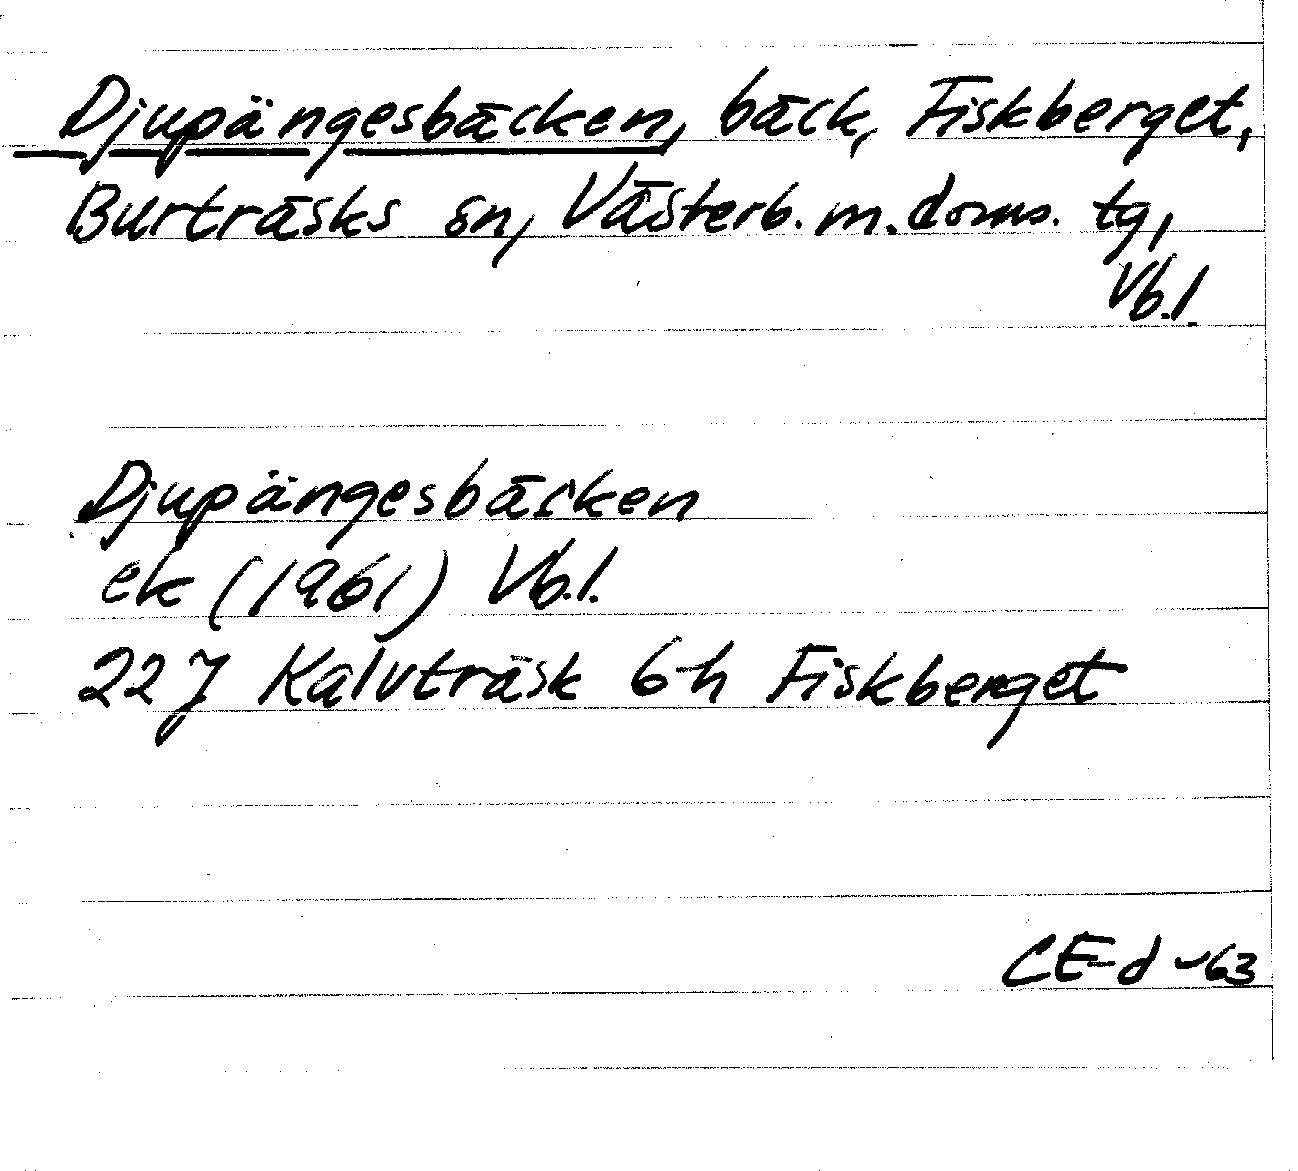 Djupängesbäcken, bäck, Fiskberget,
Burträsks sn, Västerb. m. doms. tg,
Vb.l.
Djupängesbäcken
ek (1961) Vb.l.
22 J Kalvträsk 6h Fiskberget
CE-d -63